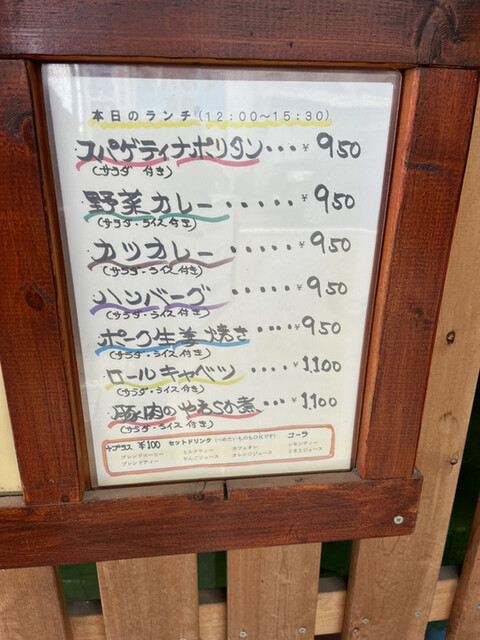 本日のランチ(12:00～15:30)
スパゲティナポリタン・・・¥950
(サラダ 付き)
野菜カレー・・・・・¥950
(サラダ・ライス付き)
カツカレー・・・・・¥950
(サラダ・ライス付き)
ハンバーグ・・・・・¥950
(サラダ・ライス付き)
ポーク生姜焼き・・・・¥950
(サラダ・ライス付き)
ロールキャベツ・・・・¥1,100
(サラダ・ライス付き)
豚肉のやわらか煮・・・¥1,100
(サラダ・ライス付き)
+プラス ¥100 セットドリンク (つめたいものもOKです!) コーラ
ブレンドコーヒー ミルクティー カフェオレ レモンティー
ブレンドティー りんごジュース オレンジジュース トマトジュース